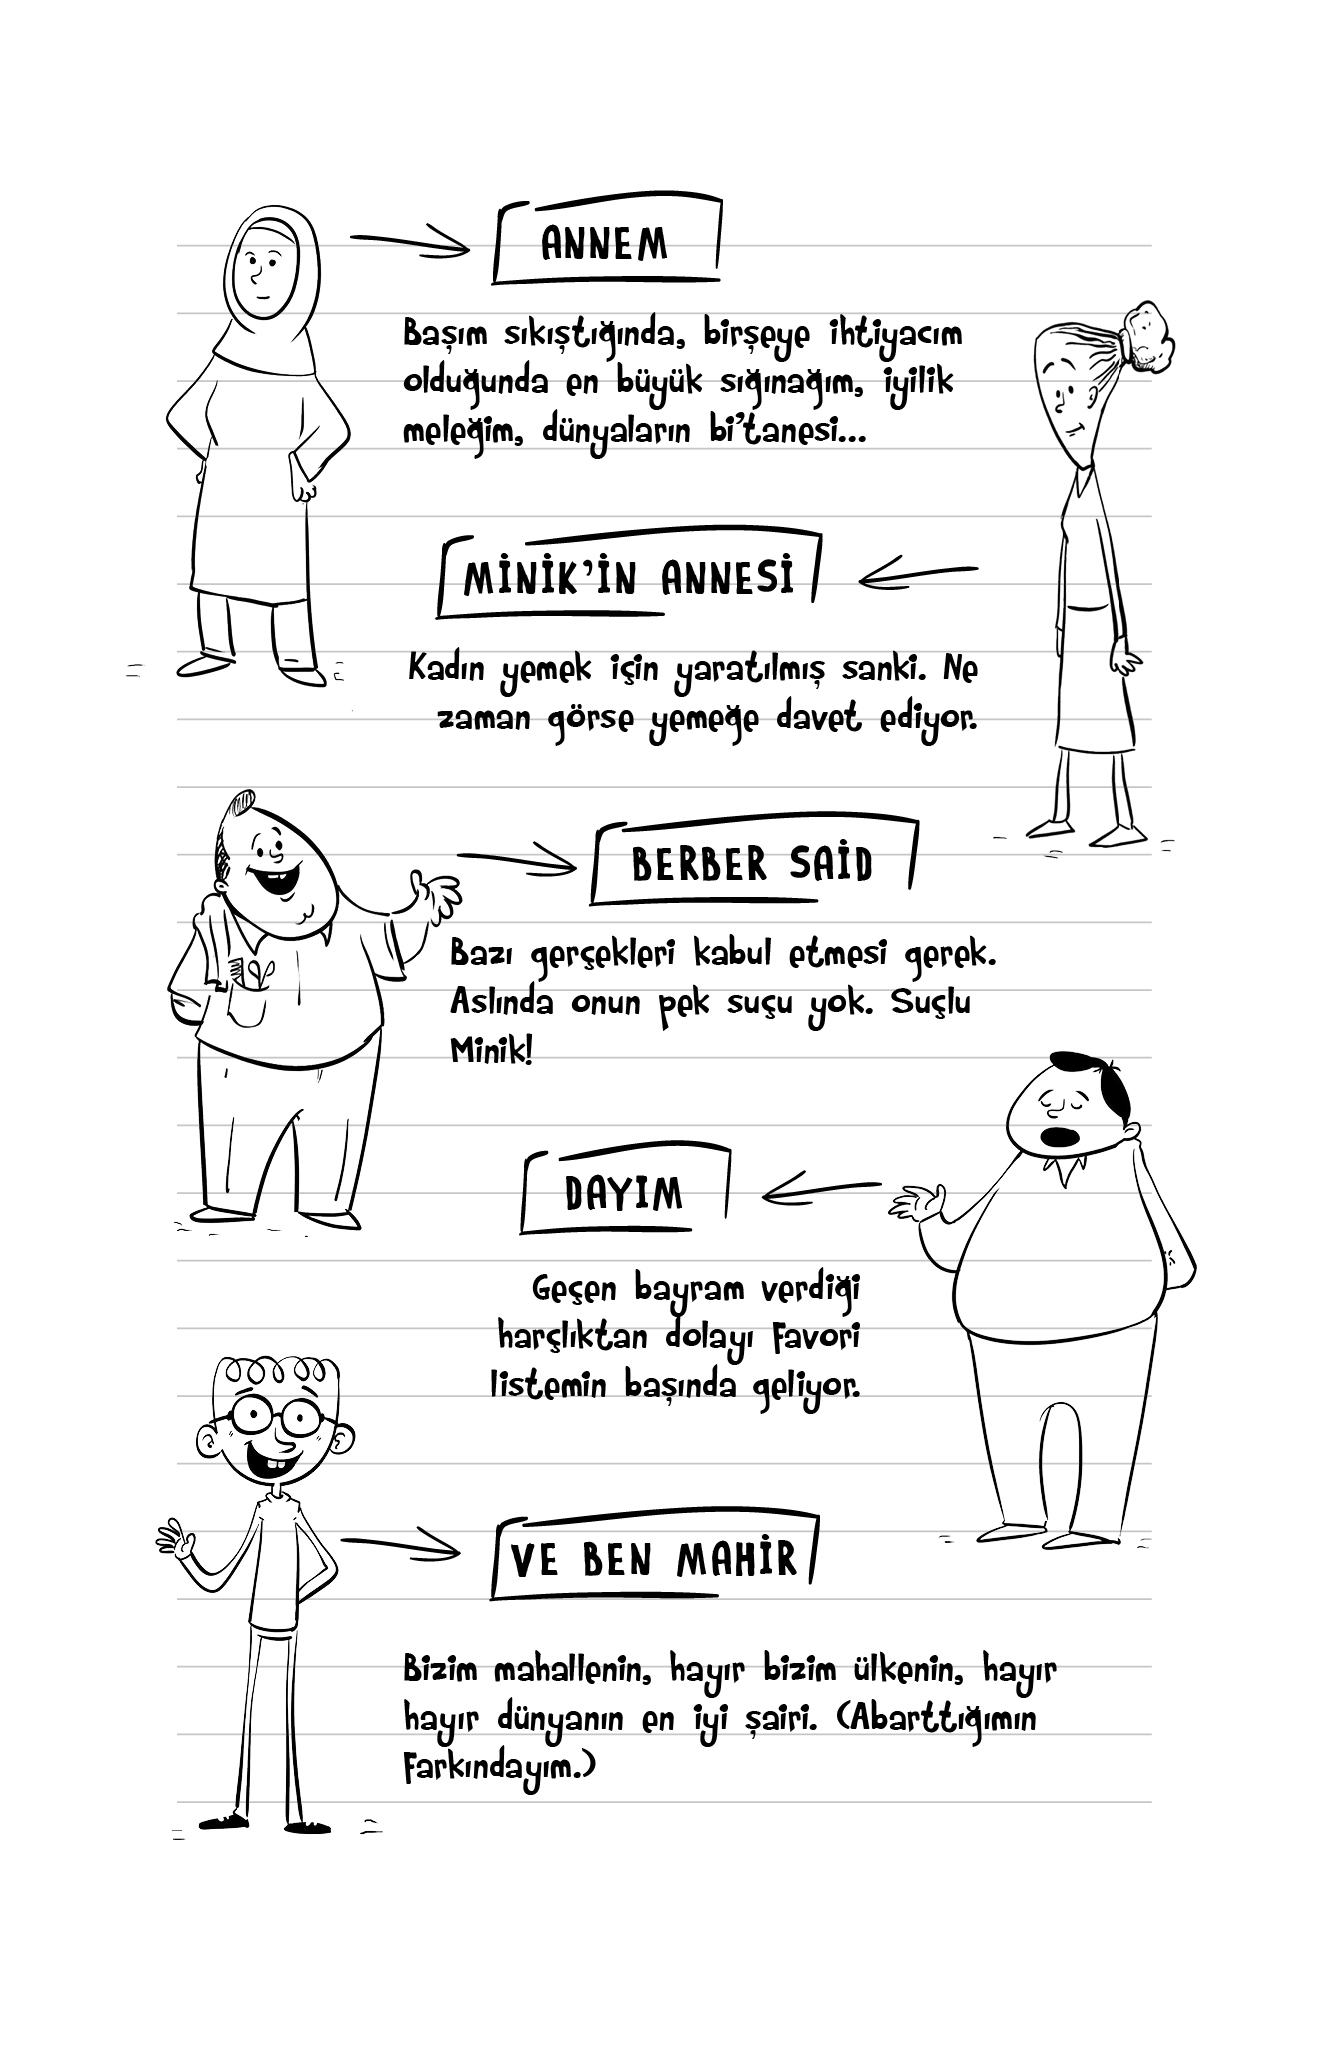 ANNEM
Başım sıkıştığında, birşeye ihtiyacım
olduğunda en büyük sığınağım, iyilik
meleğim, dünyaların bi'tanesi...
MİNİK'İN ANNESİ
Kadın yemek için yaratılmış sanki. Ne
zaman görse yemeğe davet ediyor.
BERBER SAİD
Bazı gerçekleri kabul etmesi gerek.
Aslında onun pek suçu yok. Suçlu
Minik!
DAYIM
Geçen bayram verdiği
harçlıktan dolayı Favori
listemin başında geliyor.
VE BEN MAHİR
Bizim mahallenin, hayır bizim ülkenin, hayır
hayır dünyanın en iyi şairi. (Abarttığımın
Farkındayım.)